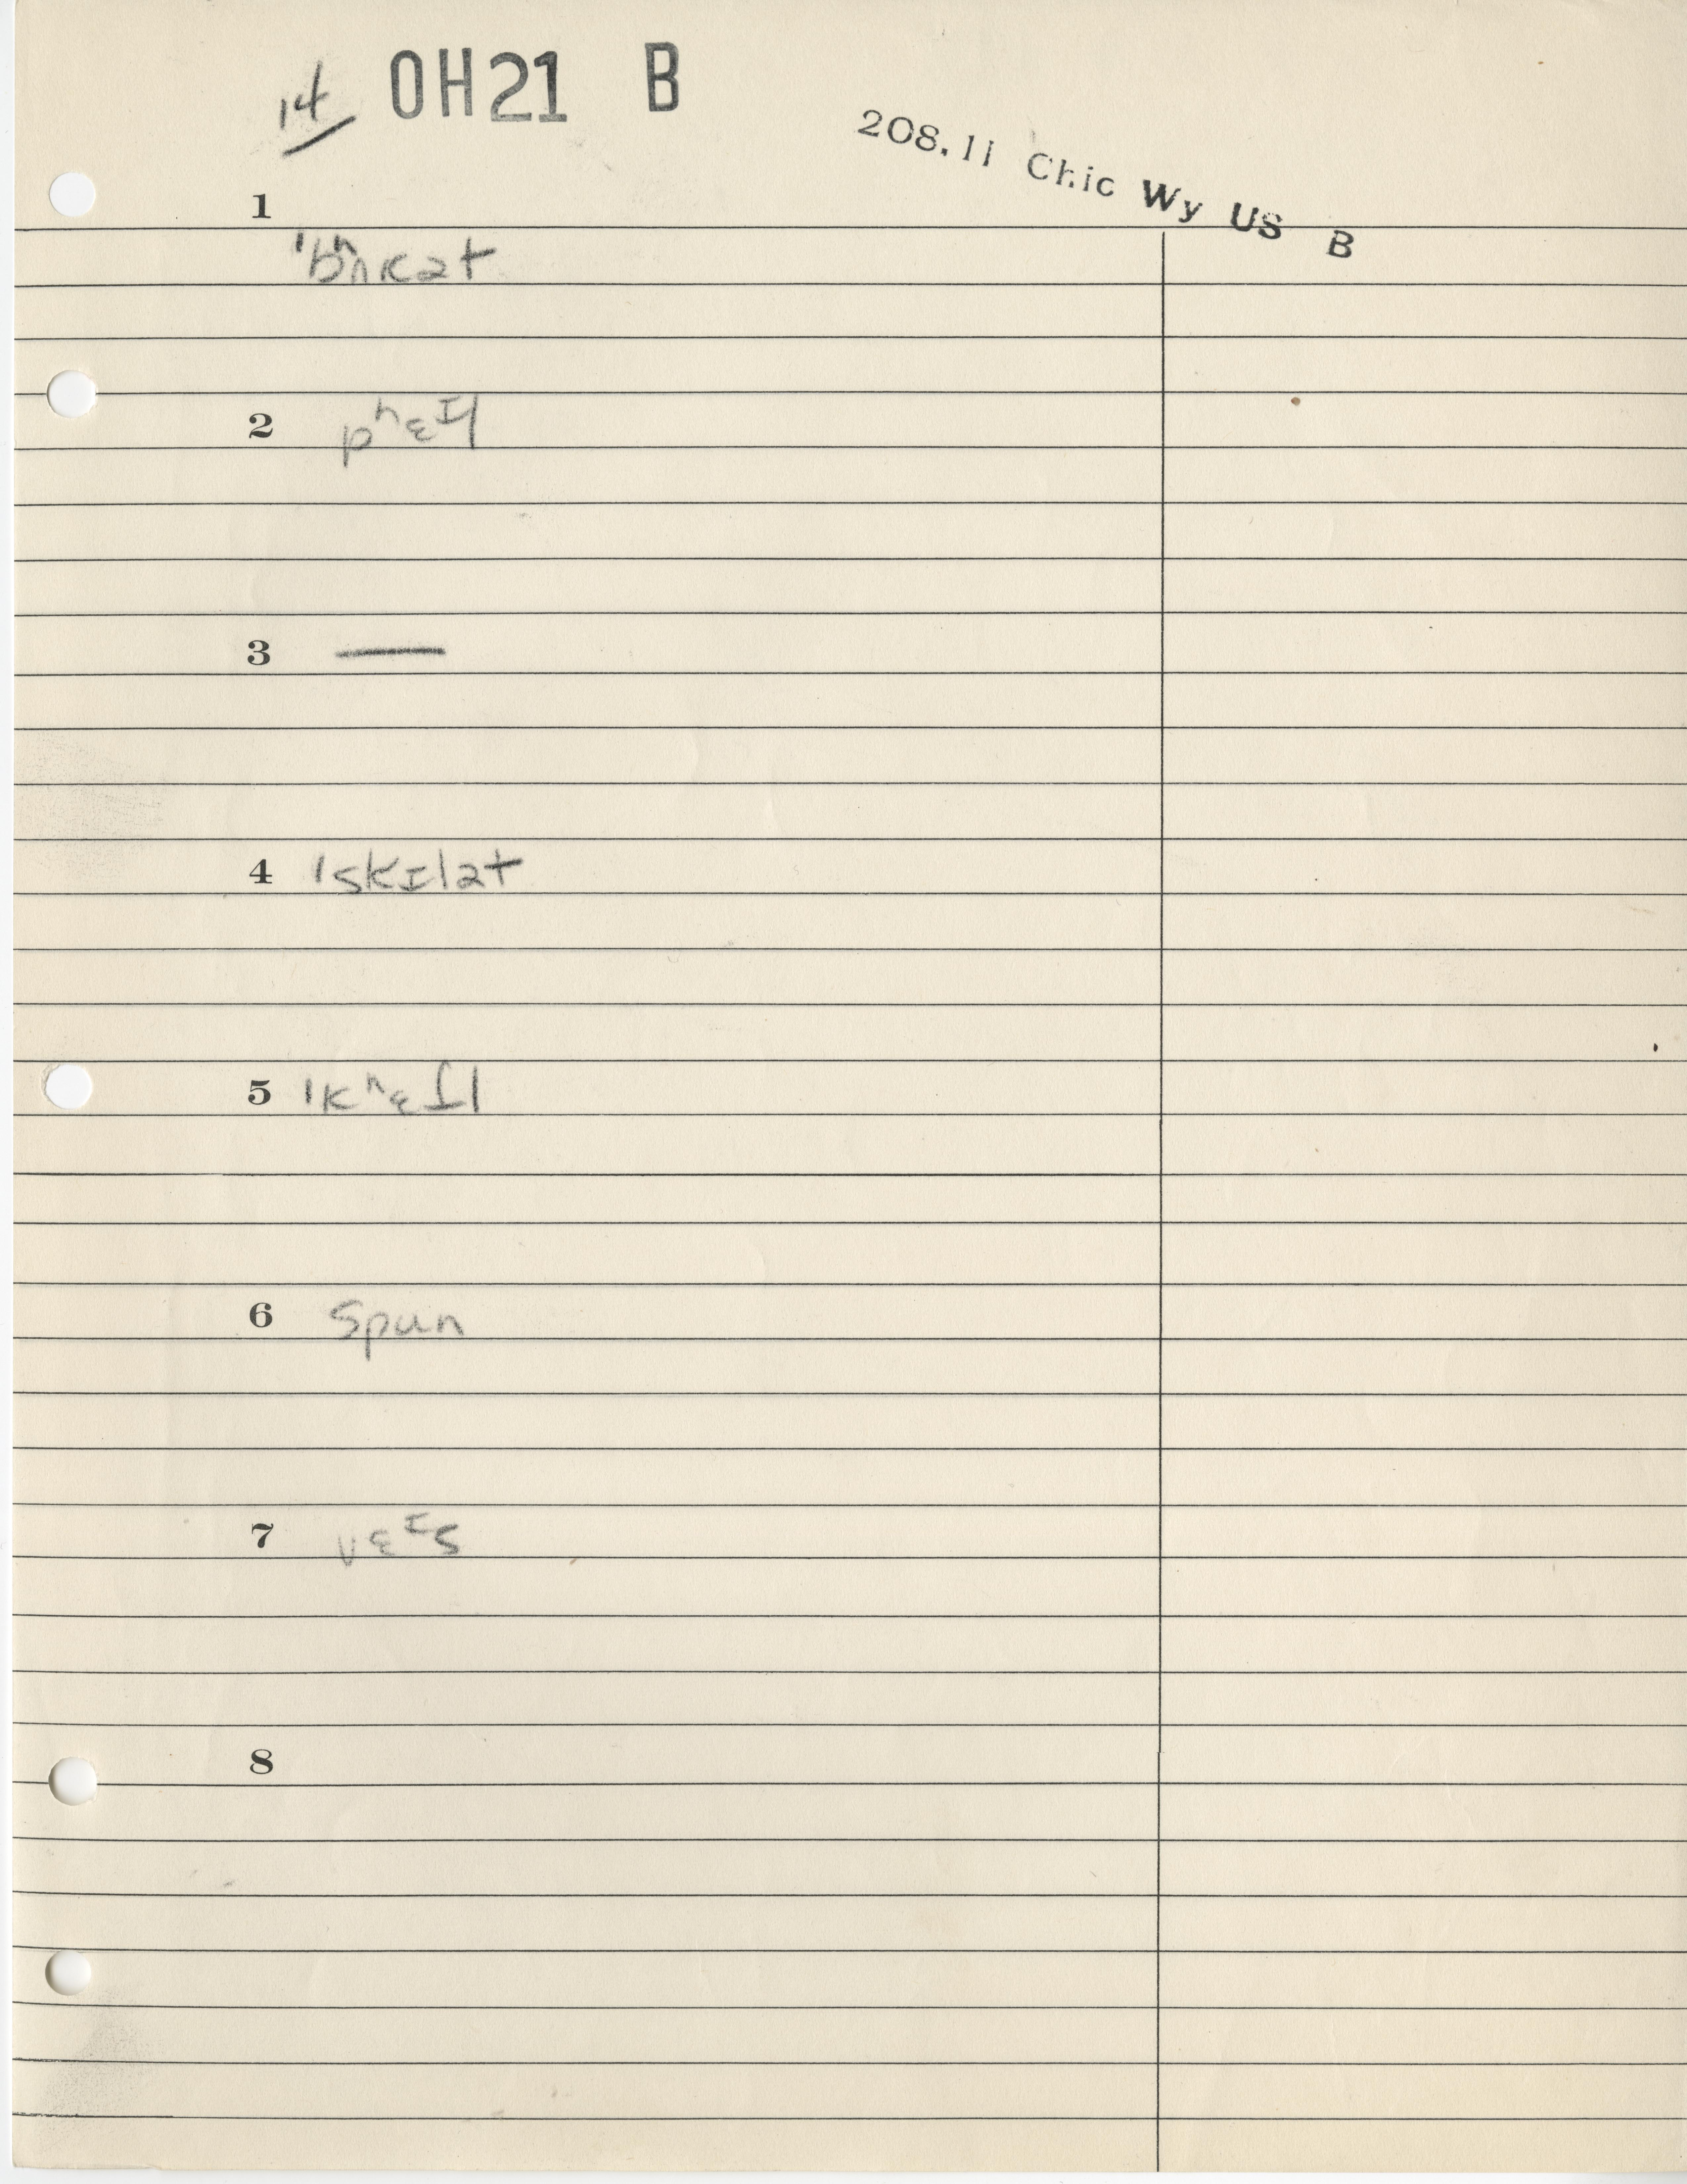 14 OH21 B
208.11 Chic Wy US B
1
2 pʰɛᶦl
3 —
4 ˈskɪlət
5 ˈkʰɛʃl
6 spun
7 vɛᶦs
8